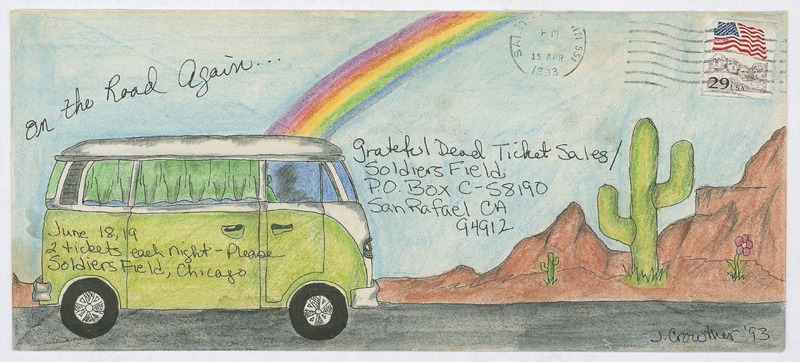 On the Road Again...
SAI
MN 551
PM
15 APR
1993
29 USA
Grateful Dead Ticket Sales/
Soldiers Field
P.O. Box C-S8190
San Rafael CA
94912
June 18, 19
2 tickets each night - Please
Soldiers Field, Chicago
J. Crowther '93